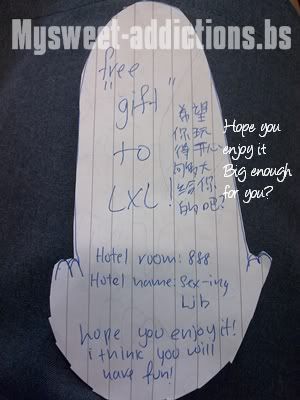 Mysweet-addictions.bs
free
"gift"
to
LXL!
希望
你玩
得开心
够大
给你
的吧?
Hope you
enjoy it
Big enough
for you?
Hotel room: 888
Hotel name: Sex-ing
Lib
hope you enjoy it!
i think you will
have fun!